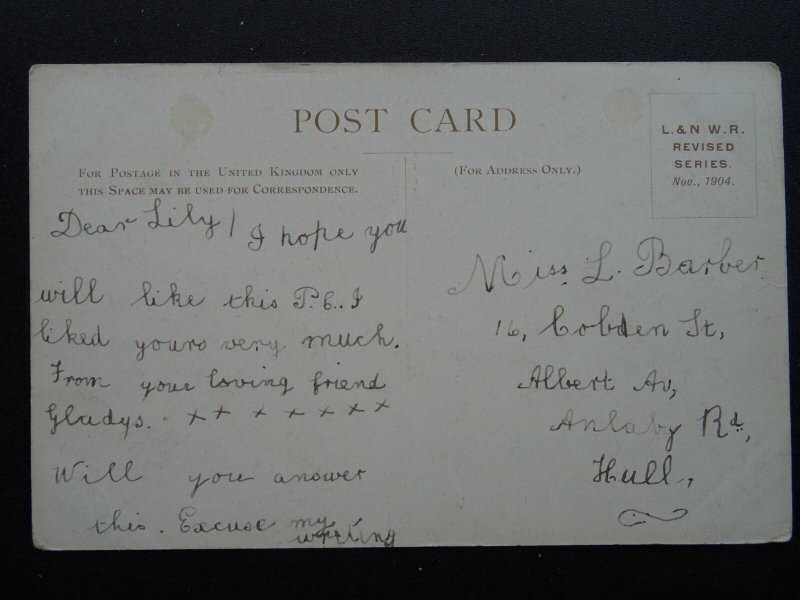 POST CARD
FOR POSTAGE IN THE UNITED KINGDOM ONLY
THIS SPACE MAY BE USED FOR CORRESPONDENCE.
(FOR ADDRESS ONLY.)
L. & N W. R.
REVISED
SERIES.
Nov., 1904.
Dear Lily / I hope you
will like this P.C. I
liked yours very much.
From your loving friend
Gladys. x x x x x x x
Will you answer
this. Excuse my
writing
Miss L. Barber.
16, Cobden St,
Albert Av,
Anlaby Rd,
Hull,